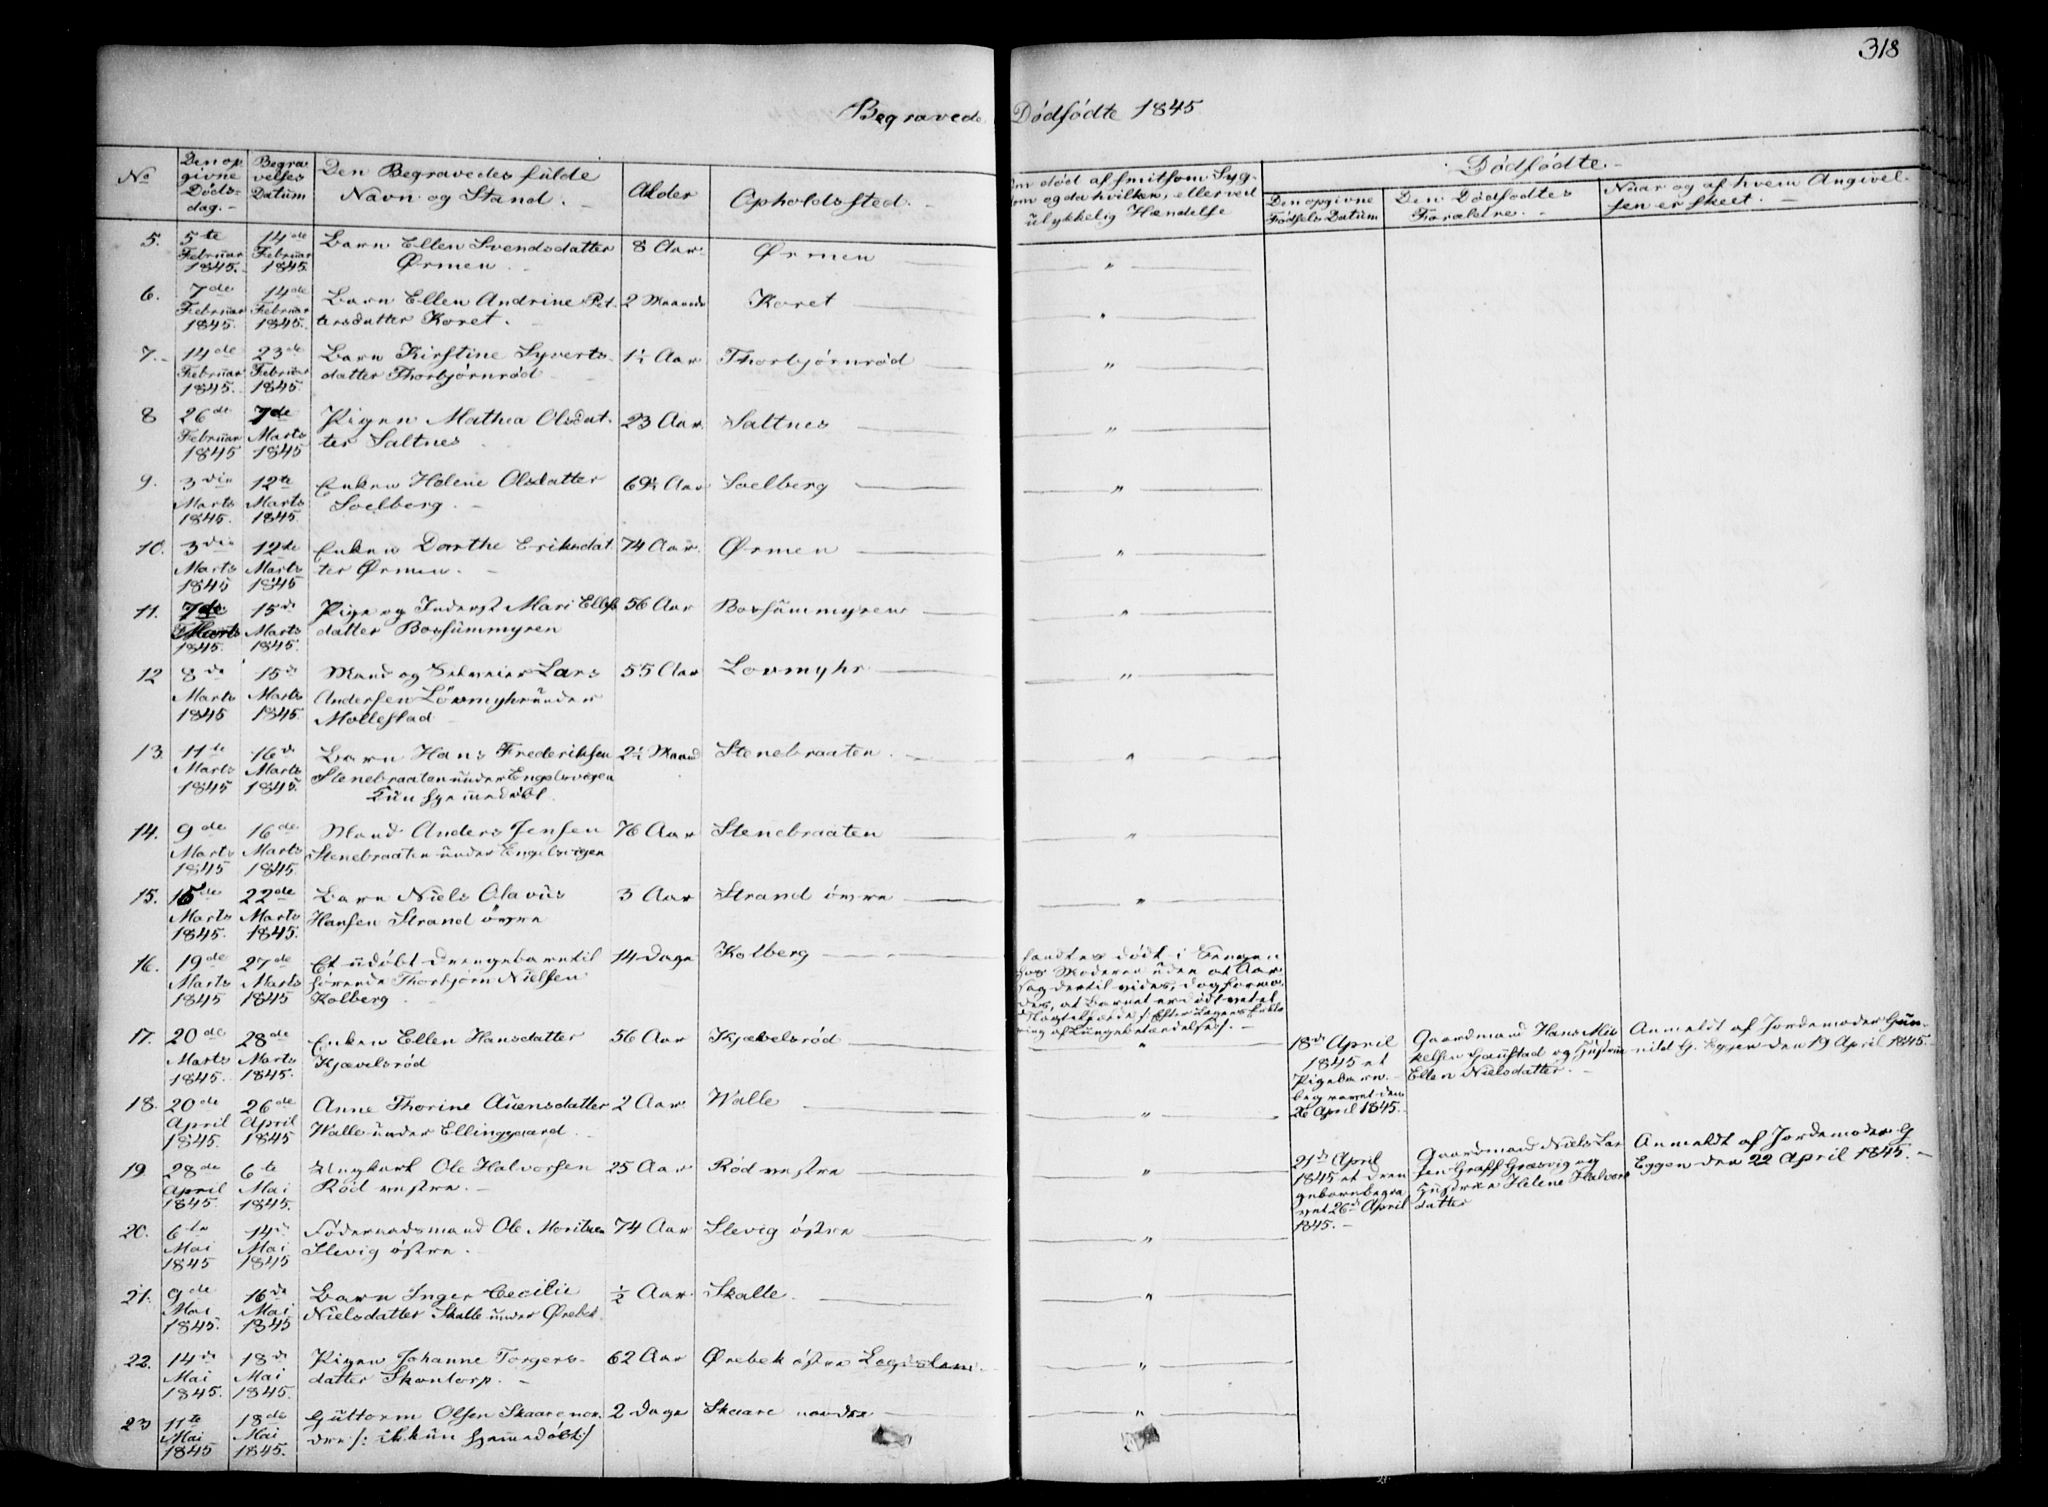 318
Begravede Dødfødte 1845
No
Den op
givne
Døds-
dag.
Begra
velses
Datum
Den Begravedes fulde
Navn og Stand.
Alder
Opholdssted.
Om død af smitsom Syg-
dom og da hvilken, eller ved
ulykkelig Hændelse
Dødfødte.
Den opgivne
Fødsels Datum
Den Dødfødtes
Forældre.
Naar og af hvem Angivel-
sen er skeet.
5. 5te Februar 1845. 14de Februar 1845. Barn Ellen Svendsdatter 8 Aar Ørmen
Ørmen
6. 7de Februar 1845. 14de Februar 1845. Barn Ellen Andrine Pet- 2 Maaneder Koret
tersdatter Koret.
7. 14de Februar 1845. 23de Februar 1845. Barn Kirstine Syverts- 1½ Aar Thorbjørnrød
datter Thorbjørnrød
8 26de Februar 1845 7de Marts 1845 Pigen Mathea Olsdat- 23 Aar Saltnes
ter Saltnes
9. 3die Marts 1845. 12te Marts 1845. Enken Helene Olsdatter Aar Soelberg
Soelberg.
10. 3die Marts 1845 12te Marts 1845 Enken Dorthe Eriksdat- 74 Aar. Ørmen
ter Ørmen.
11. 7de Marts 1845. 15de Marts 1845. Pige og Inderst Mari Ellefs 56 Aar Bossummyren
datter Bossummyren
12 8de Marts 1845 15de Marts 1845. Mand og Selveier Lars 55 Aar Lövmyhr
Andersen Lövmyhr under
Mollestad
13. 11te Marts 1845 16de Marts 1845. Barn Hans Frederiksen 2½ Maaned Stenebraaten.
Stenebraaten under Engelsvigen
kun hjemmedøbt.
14. 9de Marts 1845 16de Marts 1845. Mand Anders Jensen 76 Aar Stenebraaten
Stenebraaten under Engelsvigen
15. 15de Marts 1845. 22de Marts 1845. Barn Niels Olavus 3 Aar Strand övre
Hansen Strand övre
16. 19de Marts 1845 27de Marts 1845 Et udøbt Drengebarn til- 14 Dage Kolberg
hørende Thorbjørn Nielsen
Kolberg
fandtes dødt i Sengen
hos Moderen uden at Aar
sag dertil vides, dog formo-
des, at Barnet er dødt
af Lungebetændelse/.
17. 20de Marts 1845. 28de Marts 1845. Enken Ellen Hansdatter 56 Aar Kjævelsrød
Kjævelsrød
18de April
1845 et
Pigebarn.
begravet den
26 April 1845.
Gaardmand Hans Mik-
kelsen Gaustad og Hustrue
Ellen Nielsdatter.
Anmeldt af Jordemoder Gun-
nild G. Eggen den 19 April 1845.
18. 20de April 1845. 26de April 1845 Anne Thorine Auensdatter 2 Aar Walle
Walle under Ellinggaard.
19 28de April 1845. 6te Mai 1845. Ungkarl Ole Halvorsen 25 Aar Rød vestre
Rød vestre.
21de April
1845 et Dren
gebarn begra
vet 26de April
1845.
Gaardmand Niels Lar
sen Graff Græsvig og
Hustrue Helene Halvors
datter
Anmeldt af Jordemoder G
Eggen den 22 April 1845.
20. 6te Mai 1845 14de Mai 1845 Föderaadsmand Ole Moritzen 74 Aar Slevig østre
Slevig østre.
21. 9de Mai 1845. 16de Mai 1845 Barn Inger Cecilie ½ Aar Skalle.
Nielsdatter Skalle under Ørebek
22. 14de Mai 1845. 18de Mai 1845. Pigen Johanne Torgers- 62 Aar Ørebek østre Logislem
datter Skontorp.
23 11te Mai 1845 18de Mai 1845. Guttorm Olsen Skaare nor- 2 Dage Skaare nordre
dre /: kun hjemmedøbt:/